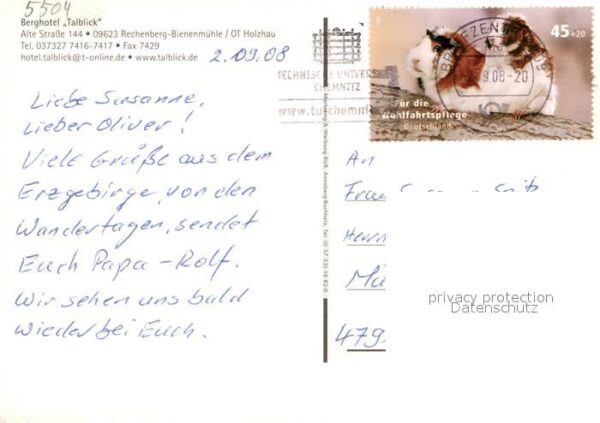 5504
Berghotel „Talblick"
Alte Straße 144 • 09623 Rechenberg-Bienenmühle / OT Holzhau
Tel. 037327 7416-7417 • Fax 7429
hotel.talblick@t-online.de • www.talblick.de
2.09.08
Liebe Susanne,
Lieber Oliver!
Viele Grüße aus dem
Erzgebirge, von den
Wandertagen, sendet
Euch Papa - Rolf.
Wir sehen uns bald
wieder bei Euch.
TECHNISCHE UNIVER
CHEMNITZ
www.tu-chemni
BRIEFZENTRUM
9.08-20
45+20
Für die
Wohlfahrtspflege
Deutschland
An
Frau
Herrn
Mü
479
privacy protection
Datenschutz